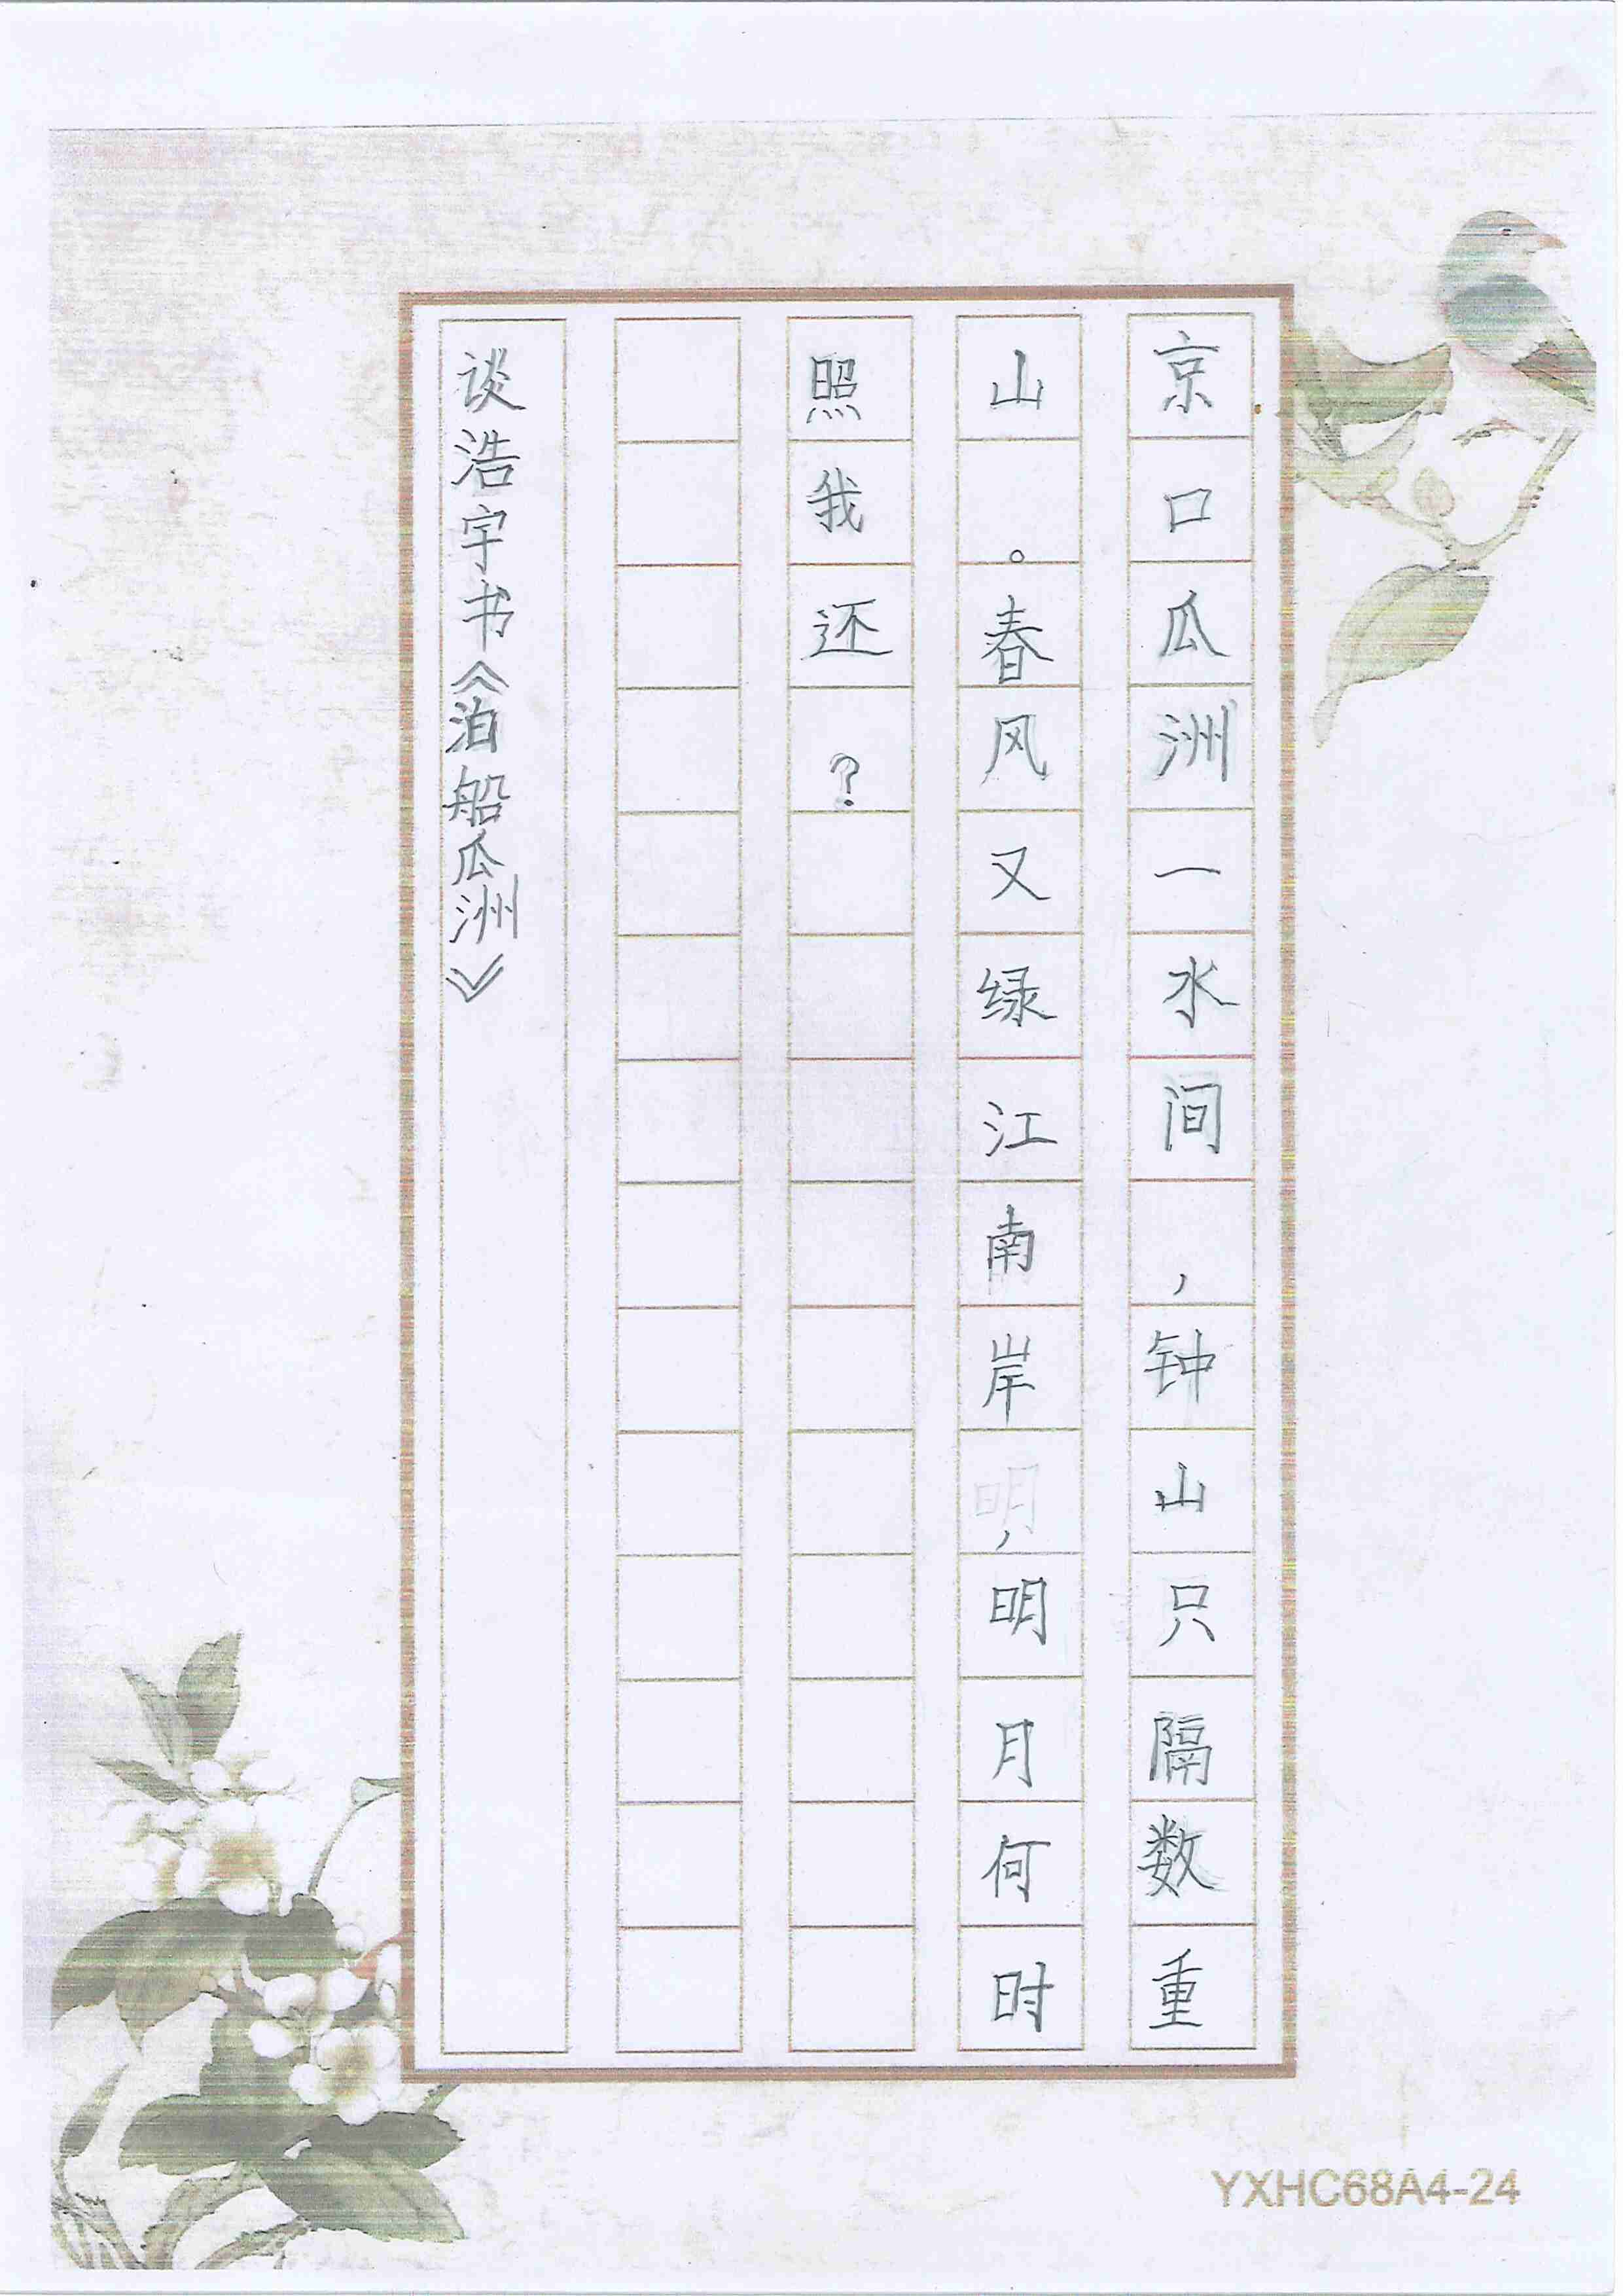 京口瓜洲一水间，钟山只隔数重
山。春风又绿江南岸，明月何时
照我还？
谈浩宇书《泊船瓜洲》
YXHC68A4-24